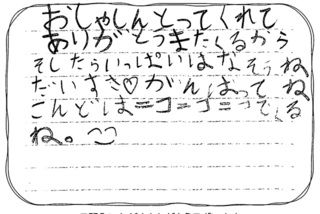 おしゃしんとってくれて
ありがとうまたくるから
そしたらいっぱいはなそうね
だいすき♡がんばってね
こんどはニコニコってくる
ね。